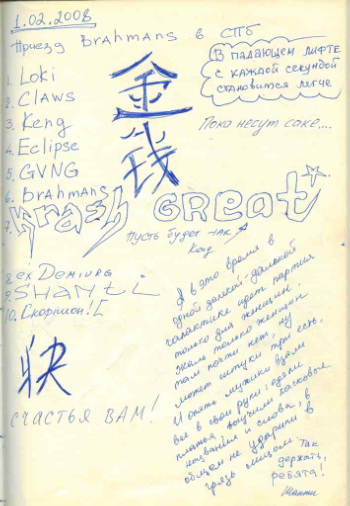 1.02.2008
Приезд BrAhmAns в СПб
В падающем лифте
с каждой секундой
становится легче
1. Loki
2. CLAWS
3. Keng
4. Eclipse
5. GVNG
6. BrAhmANS
7. Krash GReat
金
钱
Пока несут саке....
Пусть будет так
Keng
8. ex Demiurg
9. SHANTi
10. Скорпион! [
快
счастья Вам!
А в это время в
одной далёкой-далёкой
галактике идёт партия
только для женщин.
Жаль только женщин
там почти нет, ну
может штуки три есть.
И опять мужики взяли
всё в свои руки: одели
платья, выучили ласковые
названия и слова, в
общем не ударили в
грязь лицом. Так
держать,
ребята!
Шанти